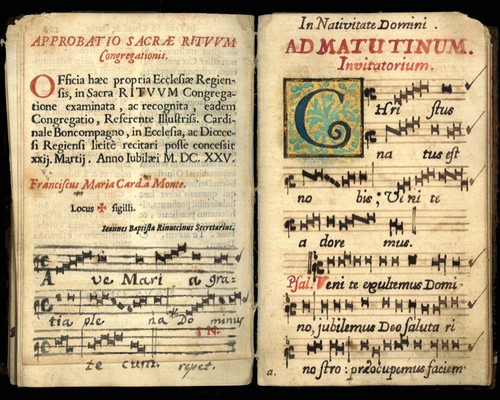 APPROBATIO SACRÆ RITVVM
Congregationis.
OFficia hæc propria Ecclesiæ Regien-
sis, in Sacra RITVVM Congrega-
tione examinata, ac recognita, eadem
Congregatio, Referente Illustriss. Cardi-
nale Boncompagno, in Ecclesia, ac Diœce-
si Regiensi licitè recitari posse concessit
xxij. Martij. Anno Iubilæi M. DC. XXV.
Franciscus Maria Card. à Monte.
Locus ✠ sigilli.
Ioannes Baptista Rinuccinus Secretarius.
A ve Mari a gra-
tia ple na Do minus
T N.
te cum. repet.
In Nativitate Domini.
AD MATUTINUM.
Invitatorium.
CHri stus
na tus est
no bis; Ve ni te
a dore mus.
Psal. Veni te exultemus Domi-
no, jubilemus Deo saluta ri
no stro: præocupemus faciem
a.